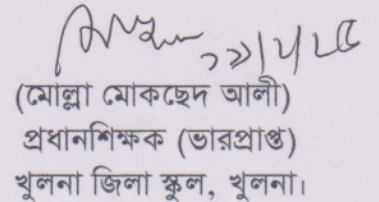 (মোল্লা মোকছেদ আলী)
প্রধানশিক্ষক (ভারপ্রাপ্ত)
খুলনা জিলা স্কুল, খুলনা।